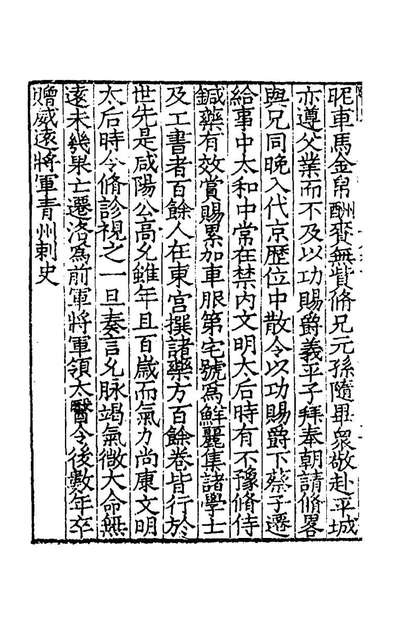 昵車馬金帛酬賚無貲脩兄元孫隨畢衆敬赴平城
亦遵父業而不及以功賜爵義平子拜奉朝請脩畧
與兄同晚入代京歷位中散令以功賜爵下蔡子遷
給事中太和中常在禁內文明太后時有不豫脩侍
鍼藥有效賞賜累加車服第宅號爲鮮麗集諸學士
及工書者百餘人在東宮撰諸藥方百餘卷皆行於
世先是咸陽公高允雖年且百歲而氣力尚康文明
太后時令脩診視之一旦奏言允脉竭氣微大命無
遠未幾果亡遷洛爲前軍將軍領太醫令後數年卒
贈威遠將軍青州刺史